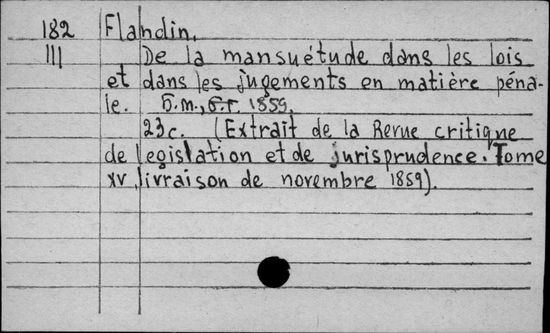 182 Flandin.
III De la mansuétude dans les lois
et dans les jugements en matière péna-
le. Б.m., б.г. 1859.
23c. (Extrait de la Revue critique
de legislation et de jurisprudence. Tome
XV, livraison de novembre 1859).